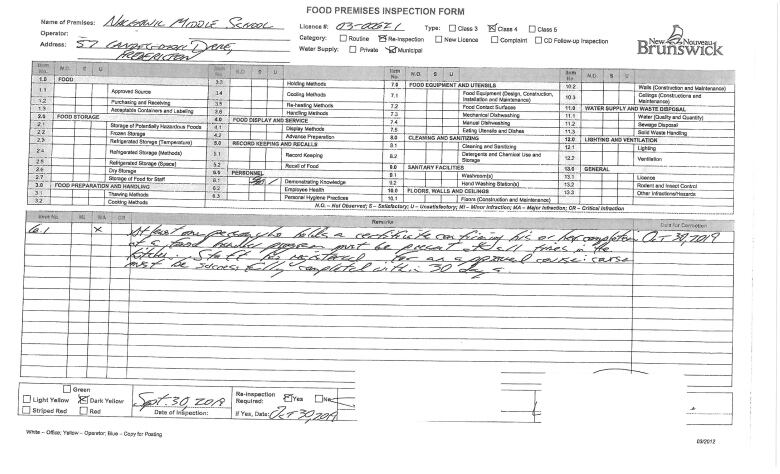 FOOD PREMISES INSPECTION FORM
Name of Premises: NASHWAAK MIDDLE SCHOOL
Licence #: 03-00571
Type: Class 3 Class 4 Class 5
Operator:
Category: Routine Re-Inspection New Licence Complaint CD Follow-up Inspection
Address: 57
FREDERICTON
Water Supply: Private Municipal
New Nouveau
Brunswick
Item No. N.O. S U
1.0 FOOD
1.1 Approved Source
1.2 Purchasing and Receiving
1.3 Acceptable Containers and Labeling
2.0 FOOD STORAGE
2.1 Storage of Potentially Hazardous Foods
2.2 Frozen Storage
2.3 Refrigerated Storage (Temperature)
2.4 Refrigerated Storage (Methods)
2.5 Refrigerated Storage (Space)
2.6 Dry Storage
2.7 Storage of Food for Staff
3.0 FOOD PREPARATION AND HANDLING
3.1 Thawing Methods
3.2 Cooking Methods
Item No. N.O. S U
3.3 Holding Methods
3.4 Cooling Methods
3.5 Re-heating Methods
3.6 Handling Methods
4.0 FOOD DISPLAY AND SERVICE
4.1 Display Methods
4.2 Advance Preparation
5.0 RECORD KEEPING AND RECALLS
5.1 Record Keeping
5.2 Recall of Food
6.0 PERSONNEL
6.1 Demonstrating Knowledge
6.2 Employee Health
6.3 Personal Hygiene Practices
Item No. N.O. S U
7.0 FOOD EQUIPMENT AND UTENSILS
7.1 Food Equipment (Design, Construction, Installation and Maintenance)
7.2 Food Contact Surfaces
7.3 Mechanical Dishwashing
7.4 Manual Dishwashing
7.5 Eating Utensils and Dishes
8.0 CLEANING AND SANITIZING
8.1 Cleaning and Sanitizing
8.2 Detergents and Chemical Use and Storage
9.0 SANITARY FACILITIES
9.1 Washroom(s)
9.2 Hand Washing Station(s)
10.0 FLOORS, WALLS AND CEILINGS
10.1 Floors (Construction and Maintenance)
Item No. N.O. S U
10.2 Walls (Construction and Maintenance)
10.3 Ceilings (Constructions and Maintenance)
11.0 WATER SUPPLY AND WASTE DISPOSAL
11.1 Water (Quality and Quantity)
11.2 Sewage Disposal
11.3 Solid Waste Handling
12.0 LIGHTING AND VENTILATION
12.1 Lighting
12.2 Ventilation
13.0 GENERAL
13.1 Licence
13.2 Rodent and Insect Control
13.3 Other Infractions/Hazards
N.O. – Not Observed; S – Satisfactory; U – Unsatisfactory; MI – Minor Infraction; MA – Major Infraction; CR – Critical Infraction
Item No. MI MA CR Remarks Date for Correction
6.1 X At least one person who holds a certificate confirming his or her completion Oct 30, 2019
of a food handler program must be present at all times in the
kitchen. Staff be registered for an approved course: course
must be successfully completed within 30 days.
Green
Light Yellow Dark Yellow
Striped Red Red
Sept. 30, 2019
Date of Inspection:
Re-inspection Required: Yes No
If Yes, Date: Oct 30, 2019
White – Office; Yellow – Operator; Blue – Copy for Posting
03/2012